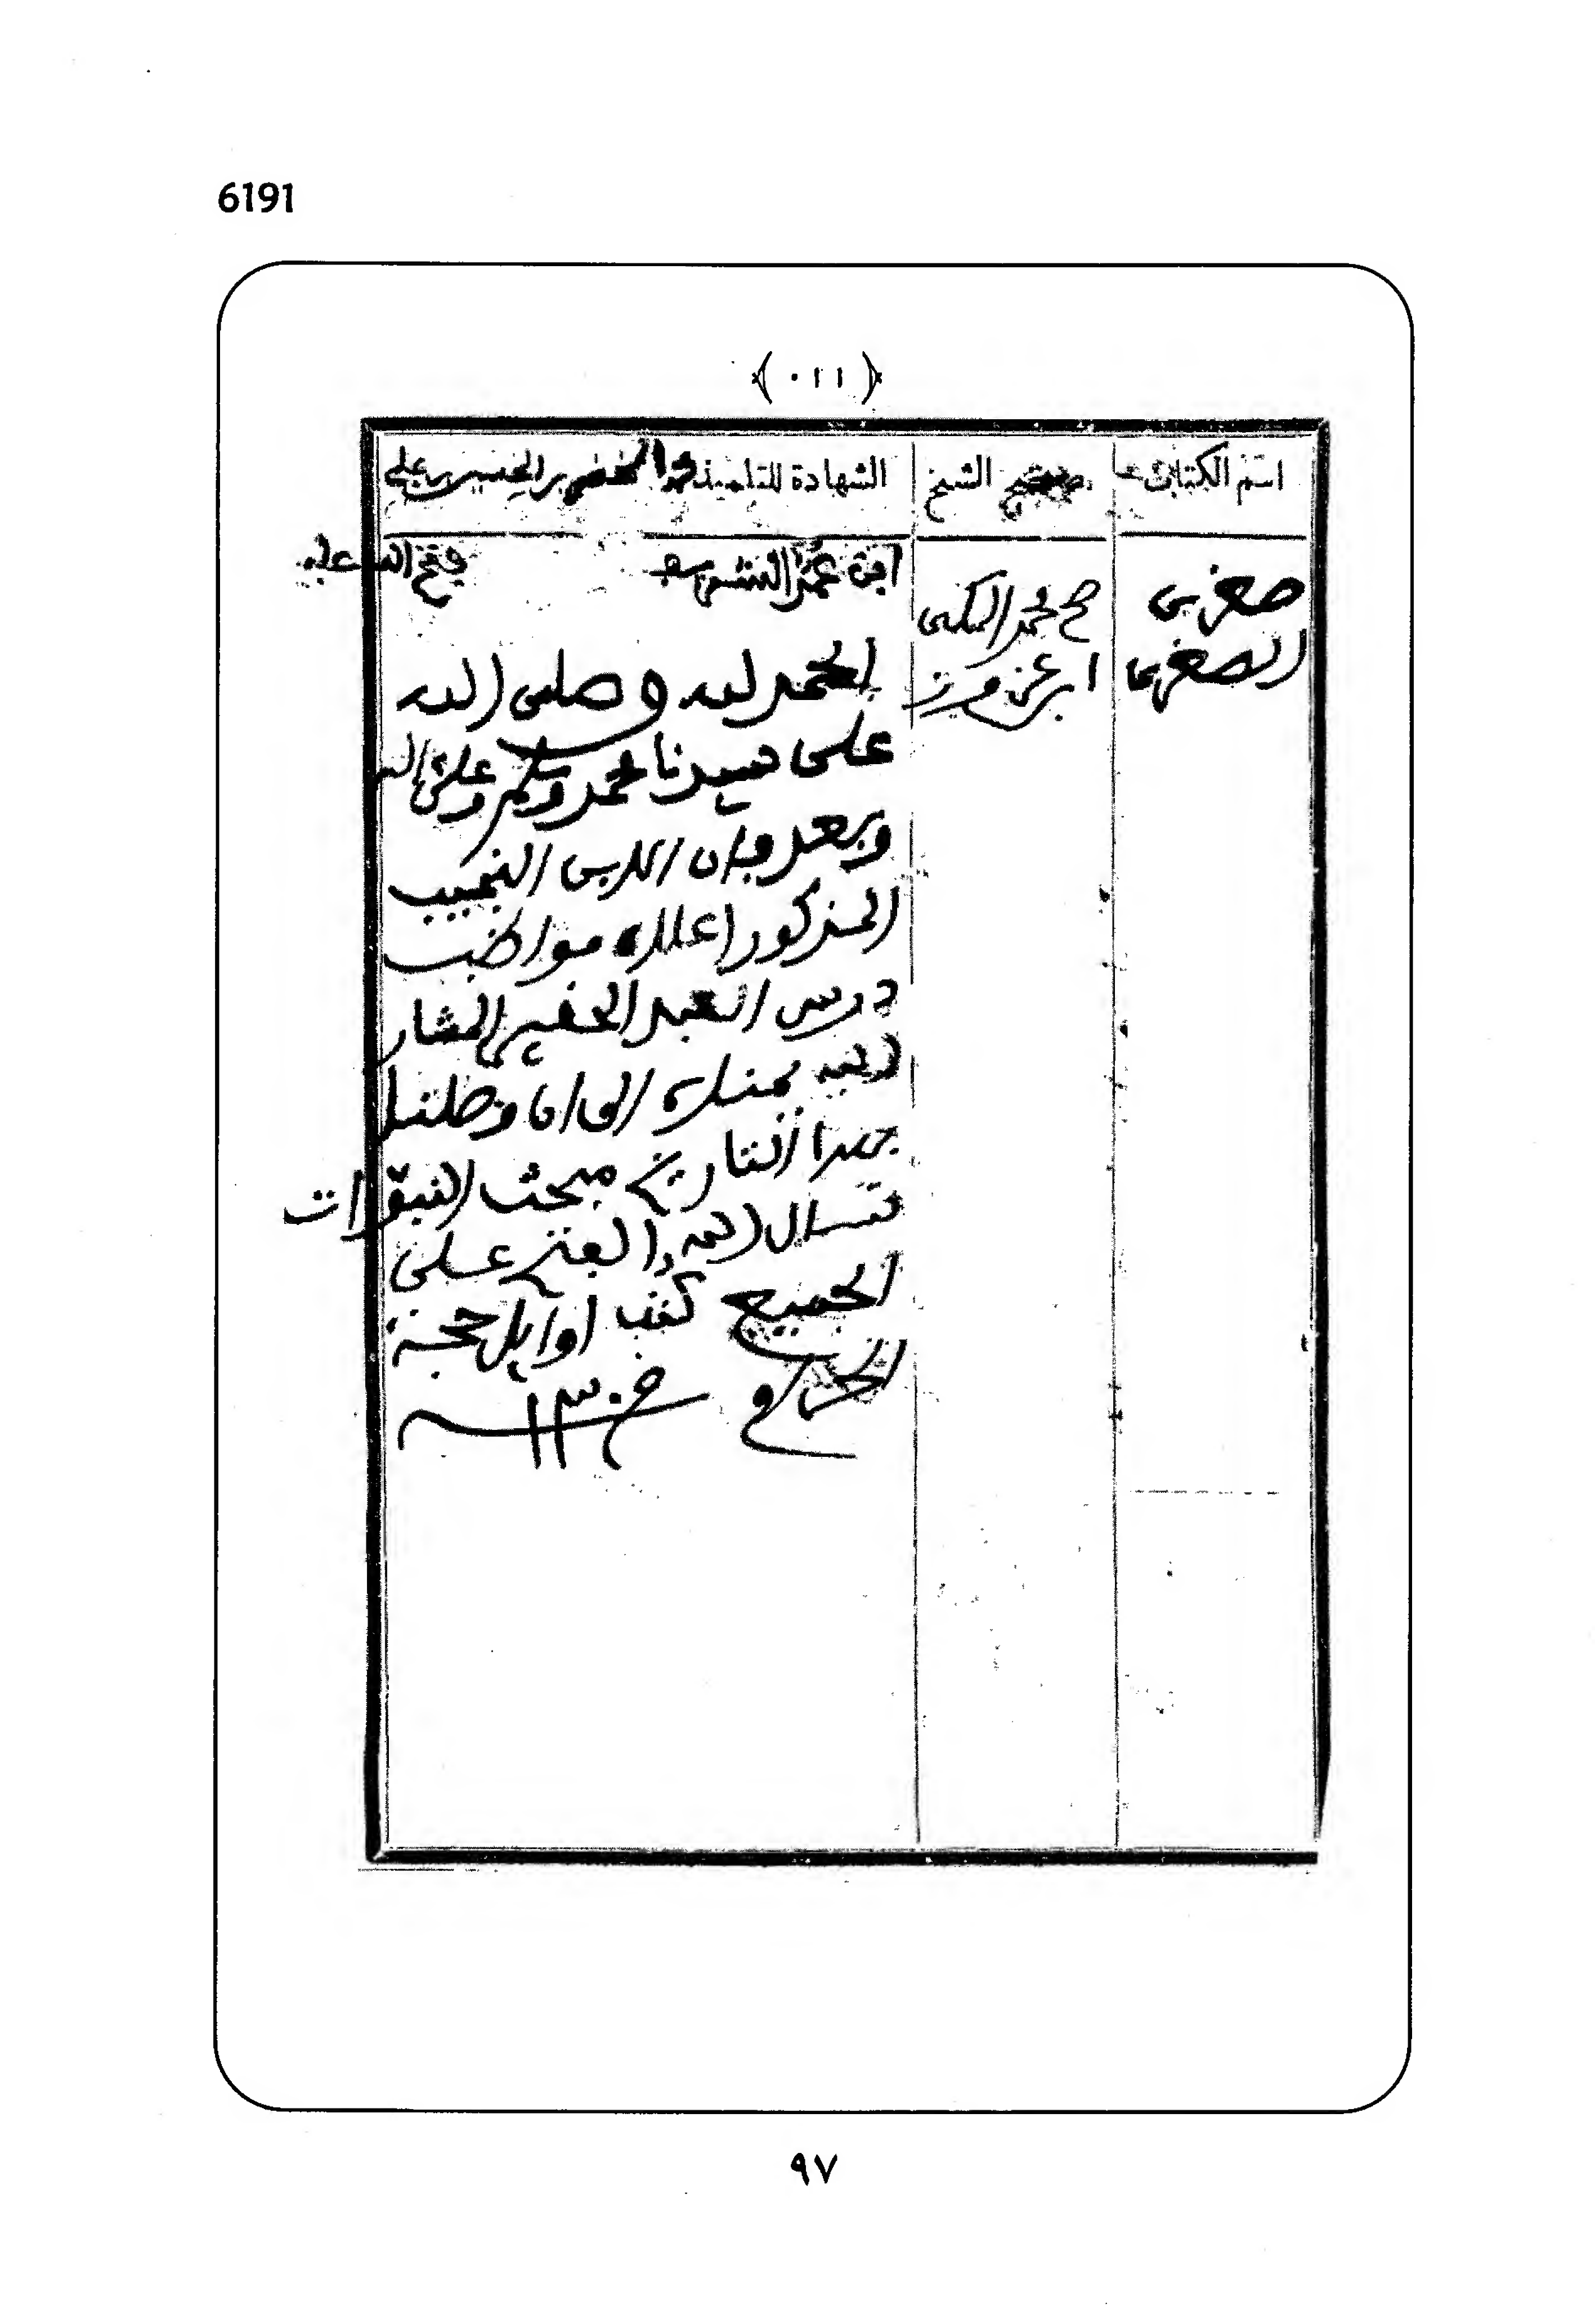 6191
﴿ ٠١١ ﴾
اسم الكتاب تصحيح الشيخ الشهادة للتلميذ محمد الخضر بن الحسين بن علي
ابن عمر الشريف فتح الله عليه
صغرى الصغرى
صح محمد المكي ابن عزوز
الحمد لله وصلى الله
على سيدنا محمد وسلم وعلى آله
وبعد فإن النجيب
المذكور اعلاه مواظب
درس العبد الحقير المشار
اليه الى ان وصلنا
بهذا التاريخ مبحث النبوات
نسال الله الفتح على
الجميع كتب اوايل حجة
الحرام ١٣٠٥
٩٧